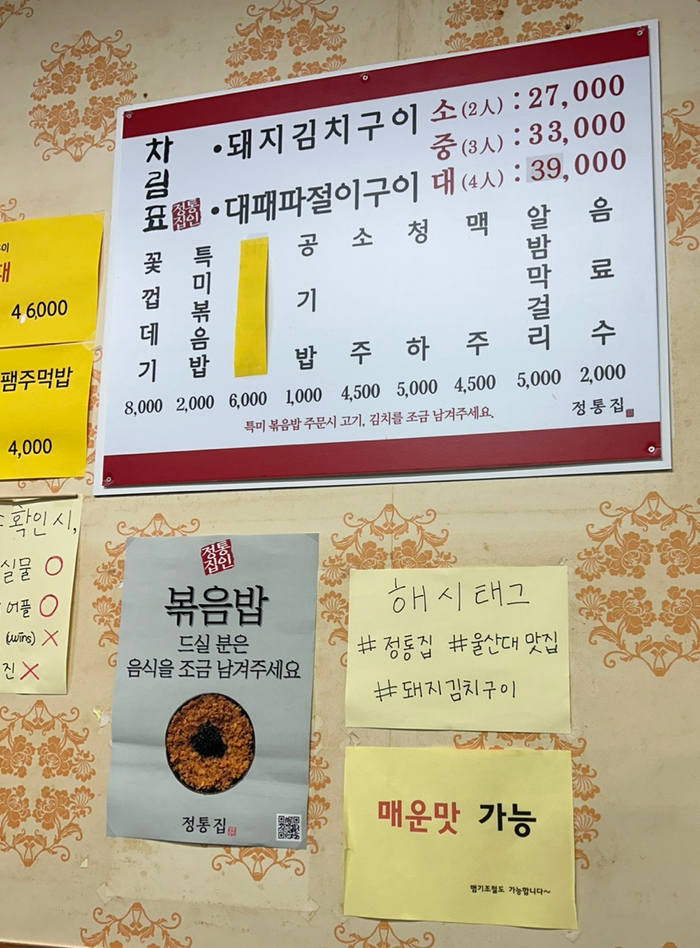 차림표
정통
집인
•돼지김치구이
•대패파절이구이
소(2人) : 27,000
중(3人) : 33,000
대(4人) : 39,000
꽃껍데기 8,000
특미볶음밥 2,000
6,000
공기밥 1,000
소주 4,500
청하 5,000
맥주 4,500
알밤막걸리 5,000
음료수 2,000
특미 볶음밥 주문시 고기, 김치를 조금 남겨주세요.
정통집
46,000
팸주먹밥
4,000
확인시,
실물 ○
어플 ○
(wins) ×
진 ×
정통
집인
볶음밥
드실 분은
음식을 조금 남겨주세요
정통집
해시태그
#정통집 #울산대 맛집
#돼지김치구이
매운맛 가능
맵기조절도 가능합니다~